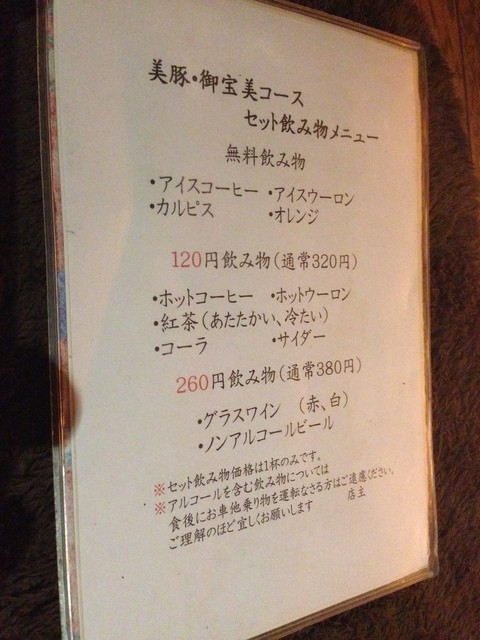 美豚・御宝美コース
セット飲み物メニュー
無料飲み物
・アイスコーヒー ・アイスウーロン
・カルピス ・オレンジ
120円飲み物(通常320円)
・ホットコーヒー ・ホットウーロン
・紅茶(あたたかい、冷たい)
・コーラ ・サイダー
260円飲み物(通常380円)
・グラスワイン (赤、白)
・ノンアルコールビール
※セット飲み物価格は1杯のみです。
※アルコールを含む飲み物については
食後にお車他乗り物を運転なさる方はご遠慮ください。
ご理解のほど宜しくお願いします 店主